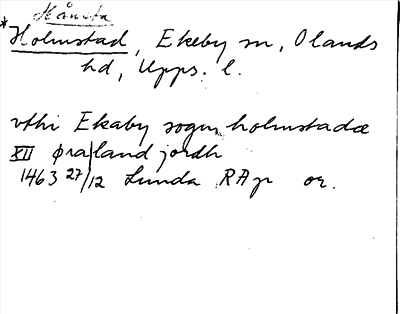 Håncta
*Holmstad, Ekeby sn, Olands
hd, Upps. l.
vthi Ekaby sogn holmstadæ
XII øra land jordh
1463 27/12 Lunda RAp or.